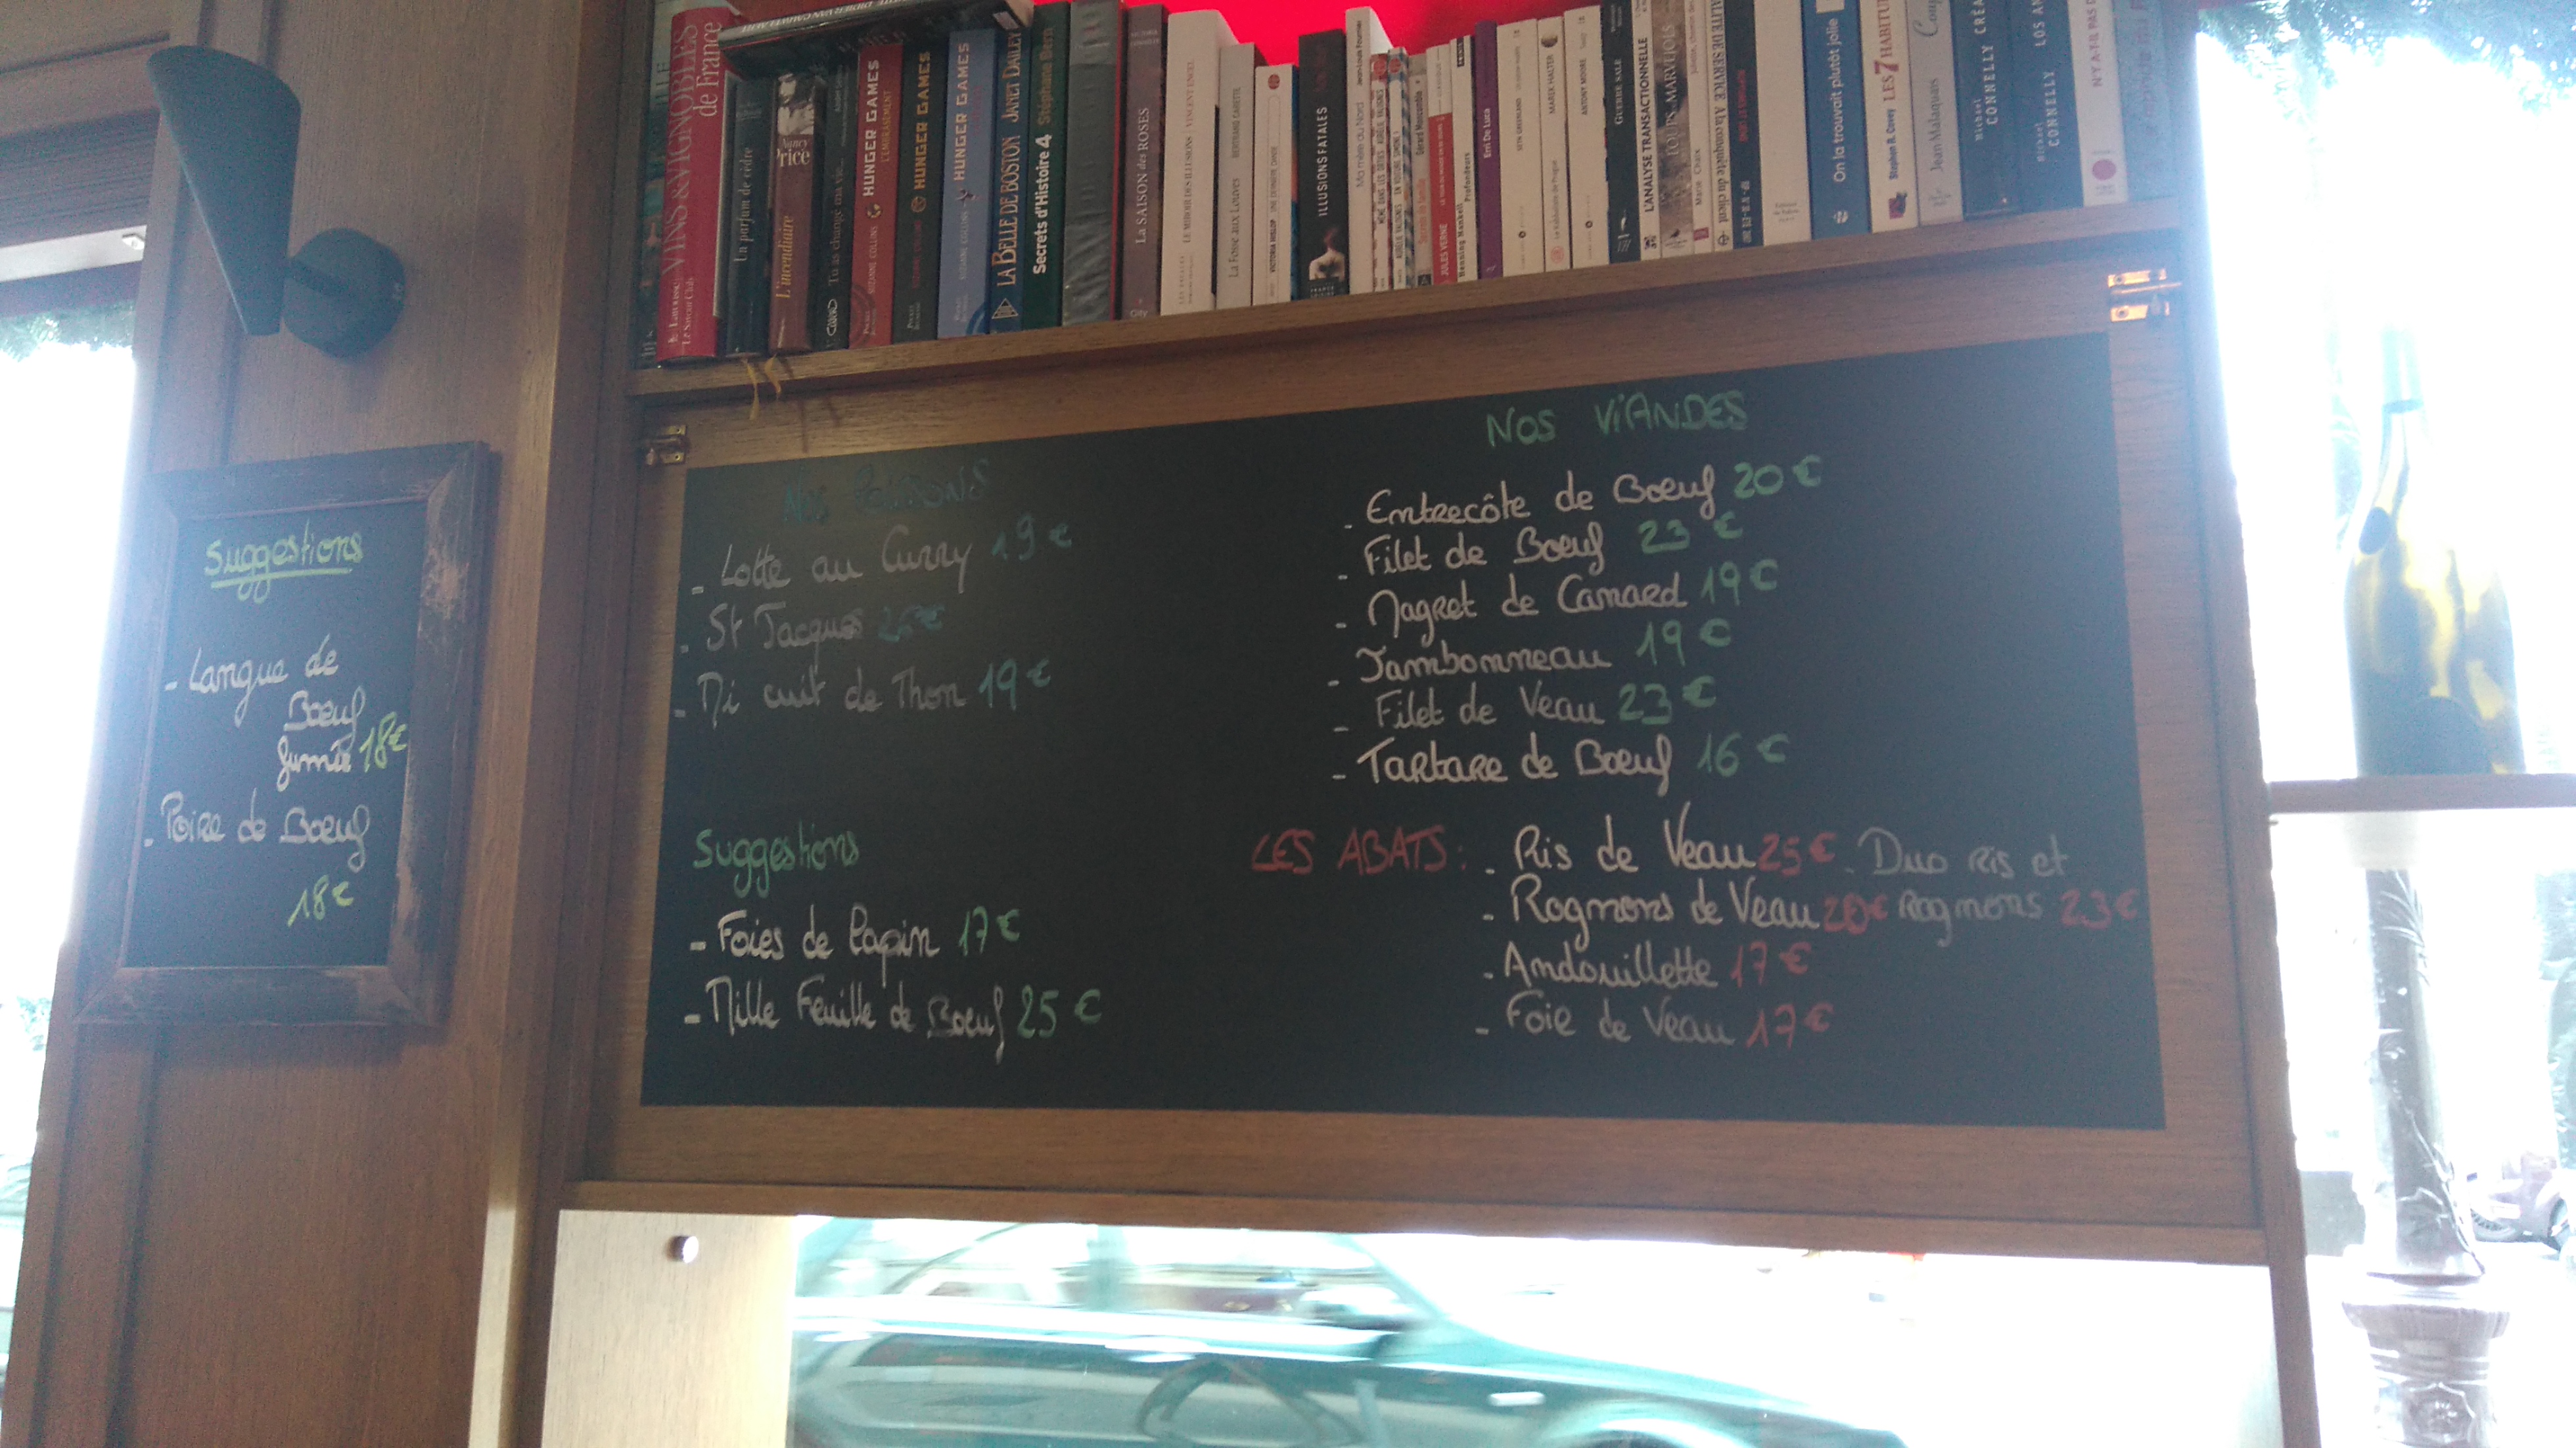 Suggestions
- Langue de
Boeuf
fumée 18€
- Poire de Boeuf
18€
VINS & VIGNOBLES
de France
LAROUSSE
Le Savour Club
Un parfum de cèdre
Nancy
Price
L'incendiaire
Tu as changé ma vie...
HUNGER GAMES
L'EMBRASEMENT
SUZANNE COLLINS
HUNGER GAMES
HUNGER GAMES
SUZANNE COLLINS
LA BELLE DE BOSTON JANET DAILEY
Secrets d'Histoire 4 Stéphane Bern
La SAISON des ROSES
LE MIROIR DES ILLUSIONS VINCENT ENGEL
La Fosse aux Louves
VICTORIA HISLOP
ILLUSIONS FATALES
Ma mère du Nord Jean-Louis Fournier
JULES VERNE
Henning Mankell Profondeurs
Erri De Luca
SETH GREENLAND
MAREK HALTER
Le Kabbaliste de Prague
ANTONY MOORE
GUERRE SALE
L'ANALYSE TRANSACTIONNELLE
LOUPS MARVEJOLS
Marie Chaix
QUALITÉ DE SERVICE À la conquête du client
On la trouvait plutôt jolie
Stephen R. Covey LES 7 HABITU
Jean Malaquais
Michael
CONNELLY CRÉA
Michael
CONNELLY LOS AN
N'Y A-T-IL PAS D
Nos Poissons
- Lotte au Curry 19€
- St Jacques 26€
- Mi cuit de Thon 19€
Suggestions
- Foies de Lapin 17€
- Mille Feuille de Boeuf 25€
NOS ViANDES
- Entrecôte de Boeuf 20€
- Filet de Boeuf 23€
- Magret de Canard 19€
- Jambonneau 19€
- Filet de Veau 23€
- Tartare de Boeuf 16€
LES ABATS: - Ris de Veau 25€ - Duo Ris et
- Rognons de Veau 20€ Rognons 23€
- Andouillette 17€
- Foie de Veau 17€